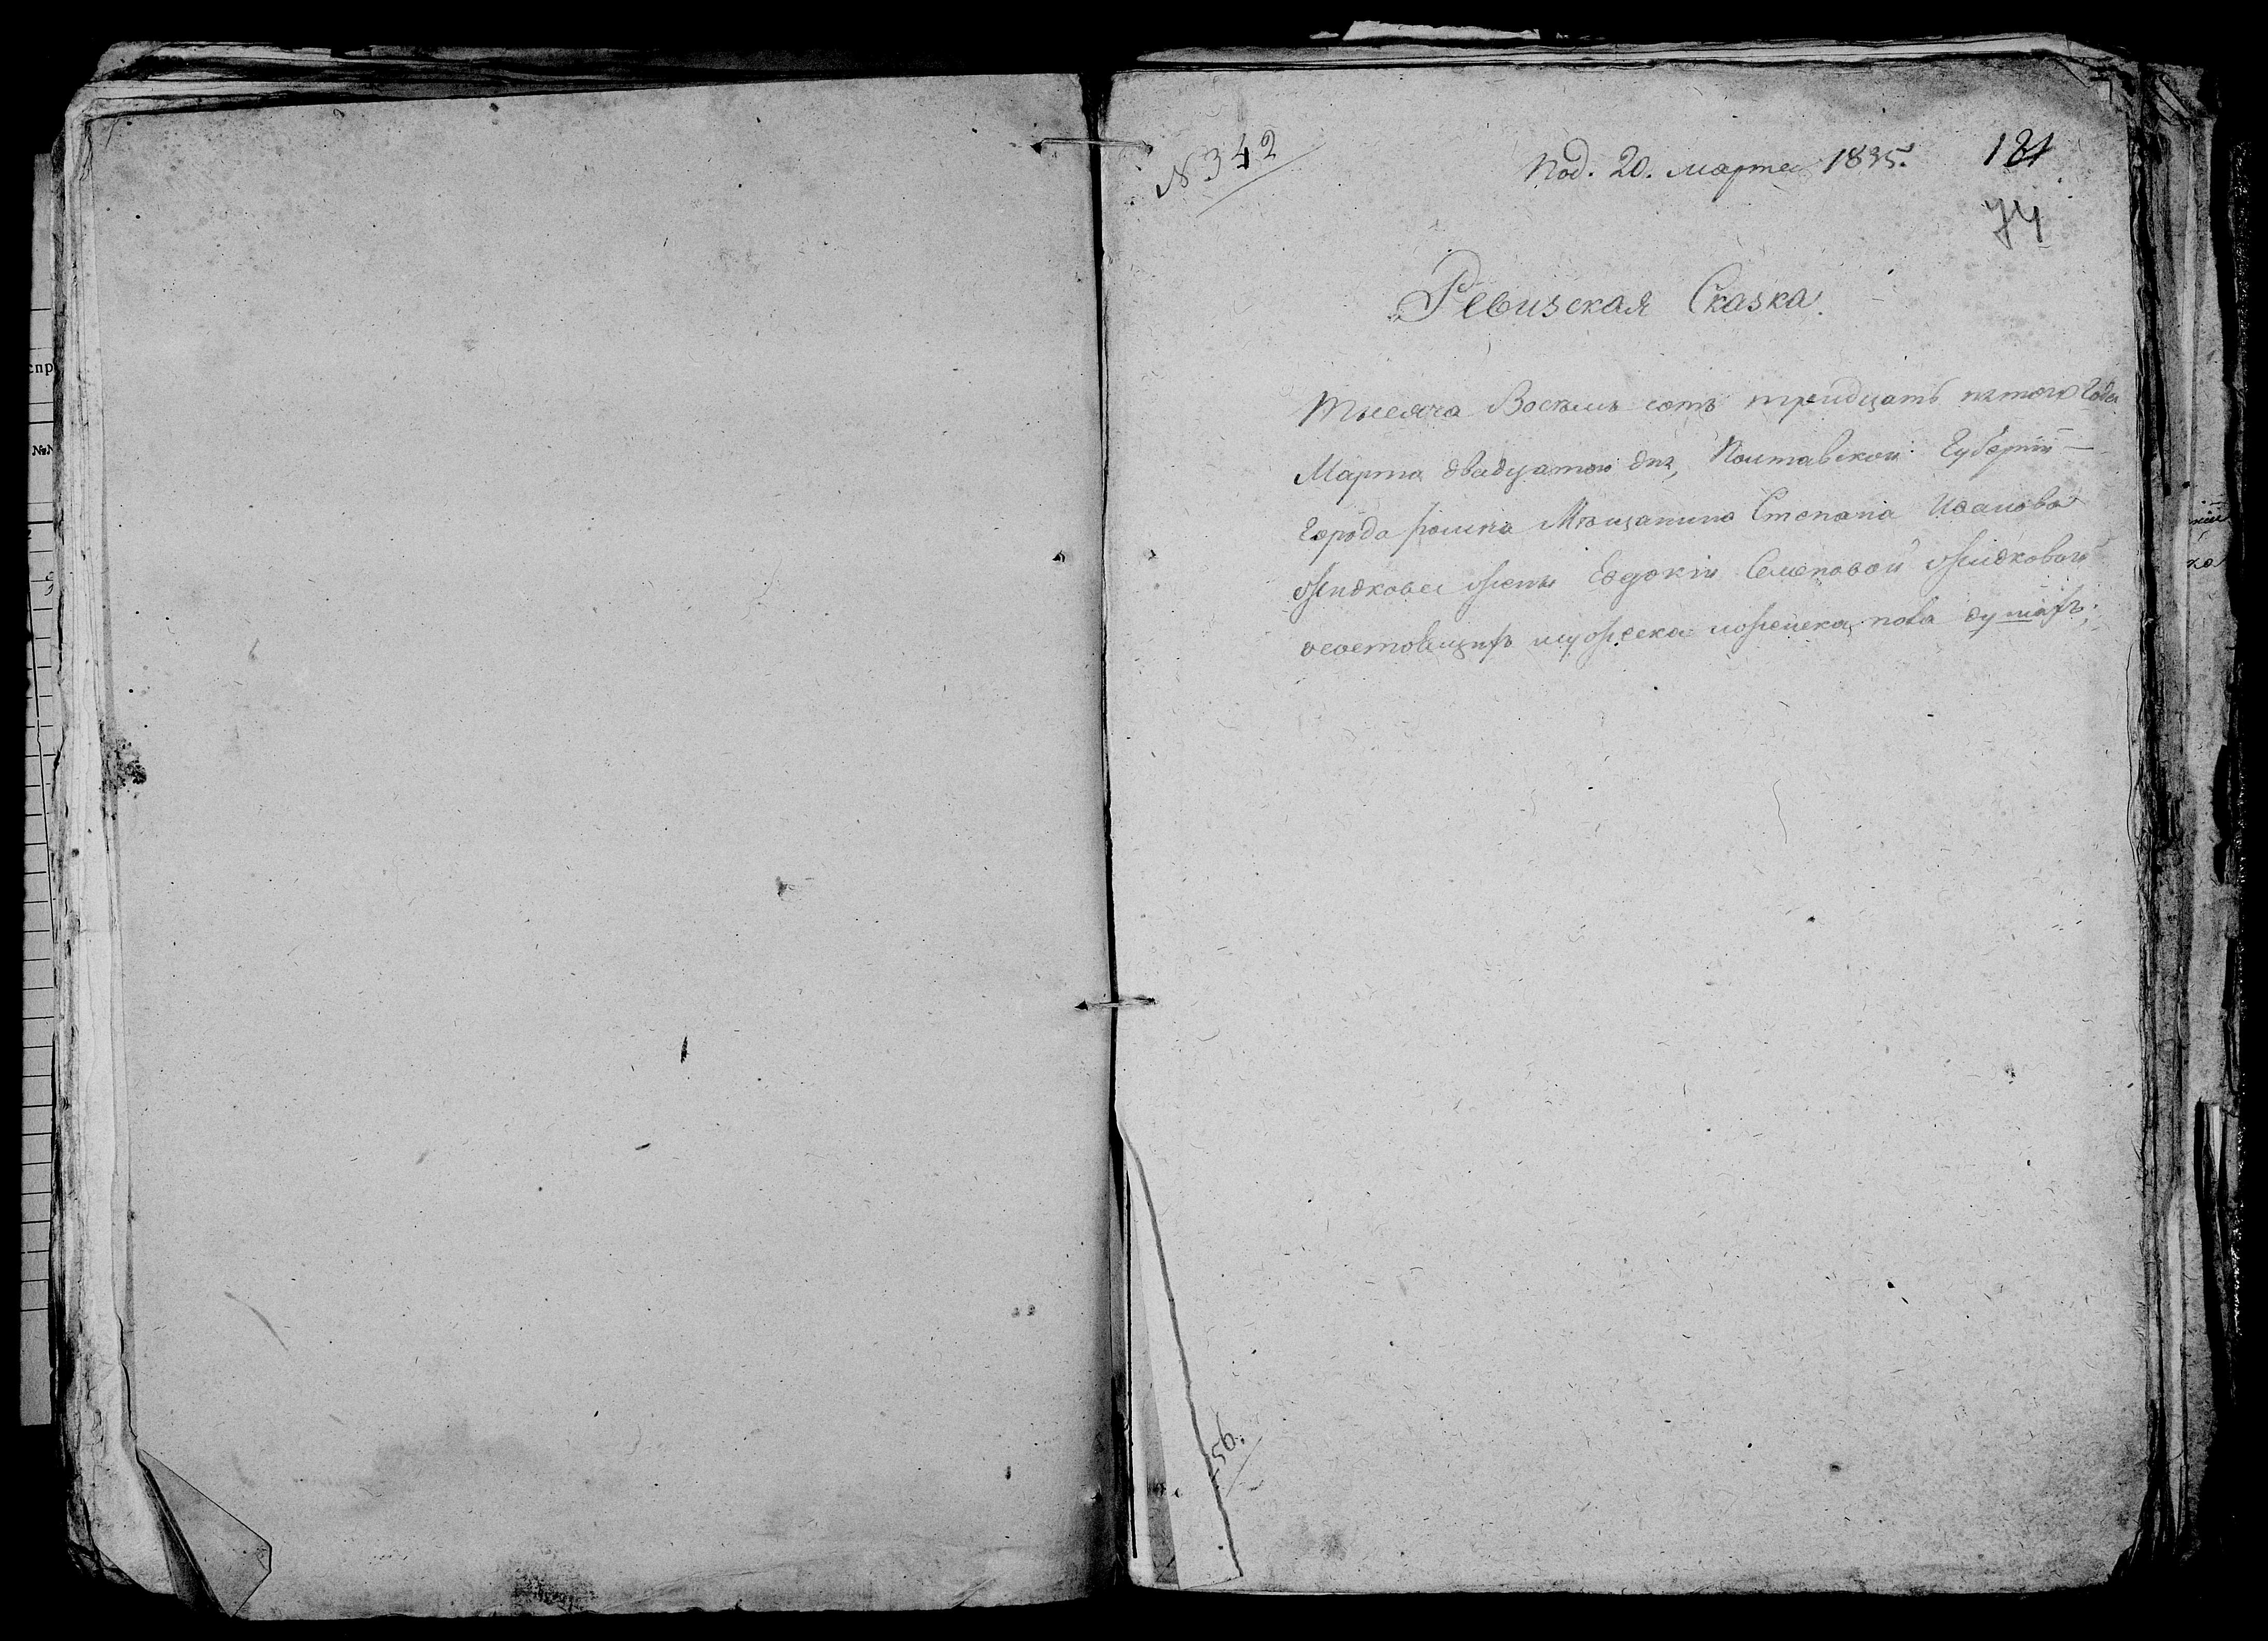 № 342
Под. 20. марта 1835.
121
74
Ревизская Сказка.
Тысяча Восемь сотъ тридцать пятого Года
Марта двадцатого дня, Полтавской Губерніи
Города Ромна Мещанина Степана Иванова
Жидкова жены Евдокіи Семеновой Жидковой
о состоящихъ мужеска и женска пола душахъ;
56.
спр
№№